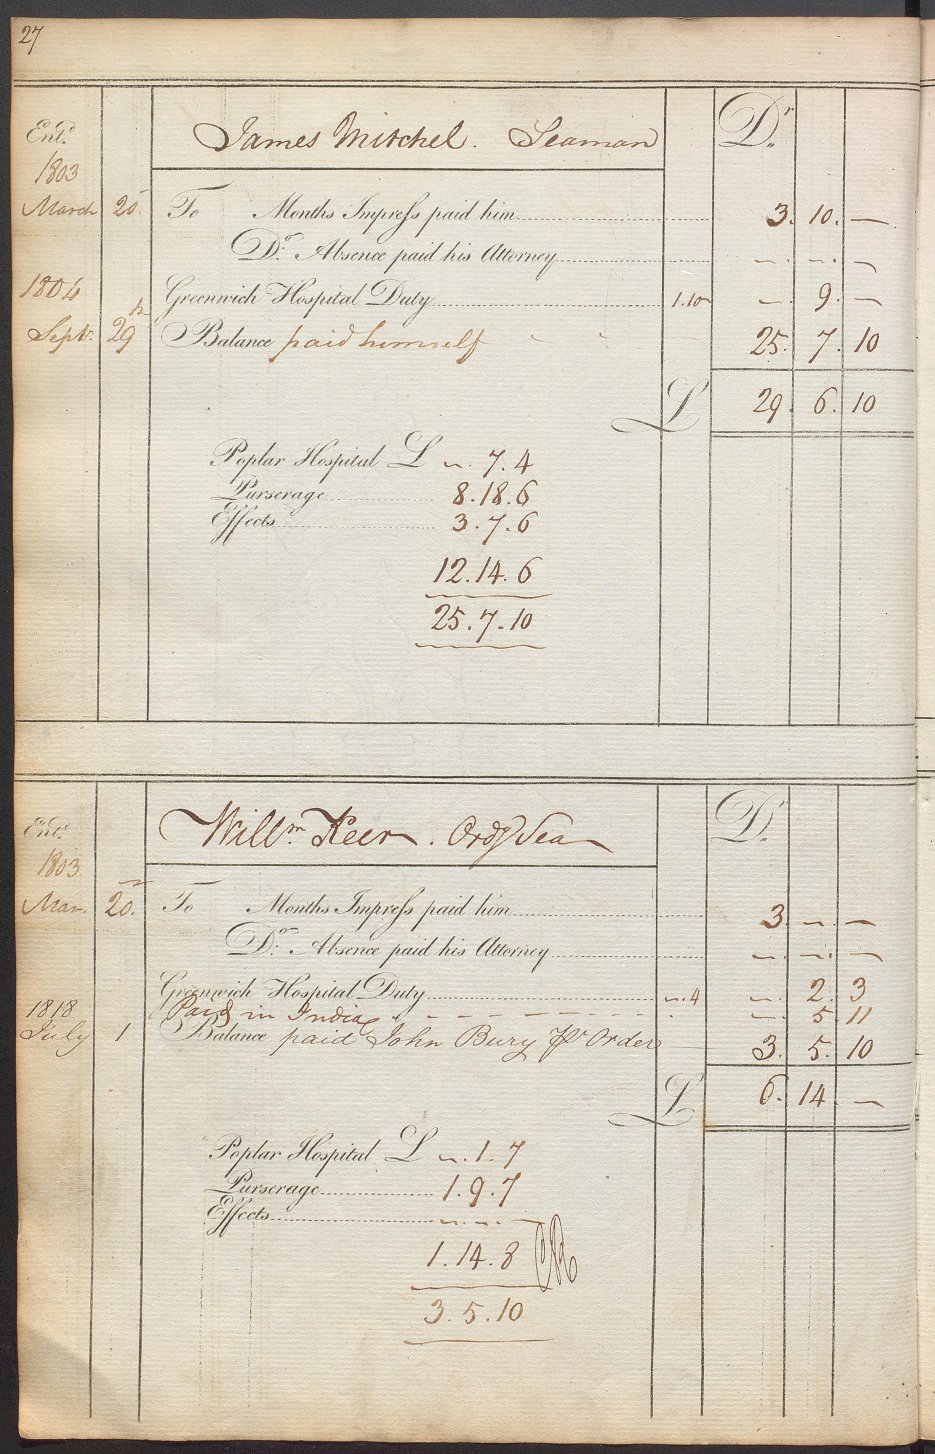 27
Ent.d
James Mitchel. Seaman
D.r
1803
March 20. To Months Impress paid him 3. 10. —
D.o Absence paid his Attorney — — —
1804
Greenwich Hospital Duty 1.10 — 9. —
Sept.r 29 Balance paid himself 25. 7. 10
£ 29. 6. 10
Poplar Hospital £ ". 7. 4
Purserage 8. 18. 6
Effects 3. 7. 6
12. 14. 6
25. 7. 10
Ent.d
Will.m Keer. Ord.y Sea
D.r
1803
Mar. 20. To Months Impress paid him 3 — —
D.o Absence paid his Attorney — — —
Greenwich Hospital Duty ". 4 — 2. 3
1818 Paid in India — 5. 11
July 1 Balance paid John Bury pr Order 3. 5. 10
£ 6. 14. —
Poplar Hospital £ ". 1. 7
Purserage 1. 9. 7
Effects — — —
1. 14. 8
3. 5. 10